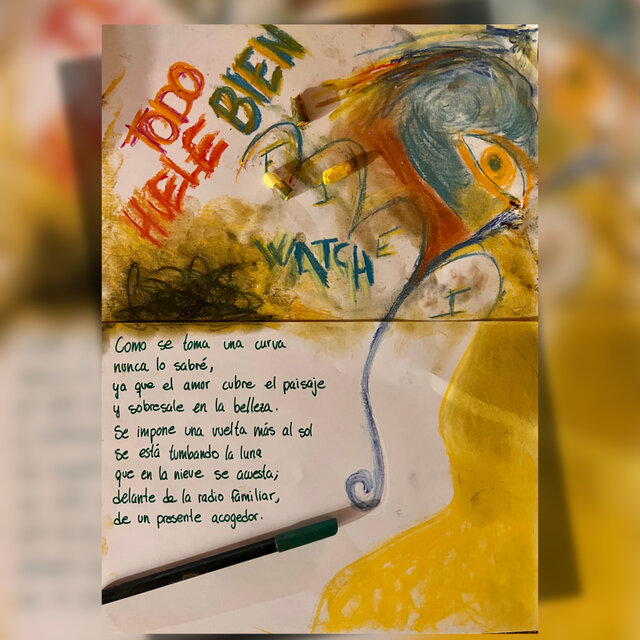 TODO
HUELE BIEN
WATCH
Como se toma una curva
nunca lo sabré,
ya que el amor cubre el paisaje
y sobresale en la belleza.
Se impone una vuelta más al sol
se está tumbando la luna
que en la nieve se acuesta;
delante de la radio familiar,
de un presente acogedor.